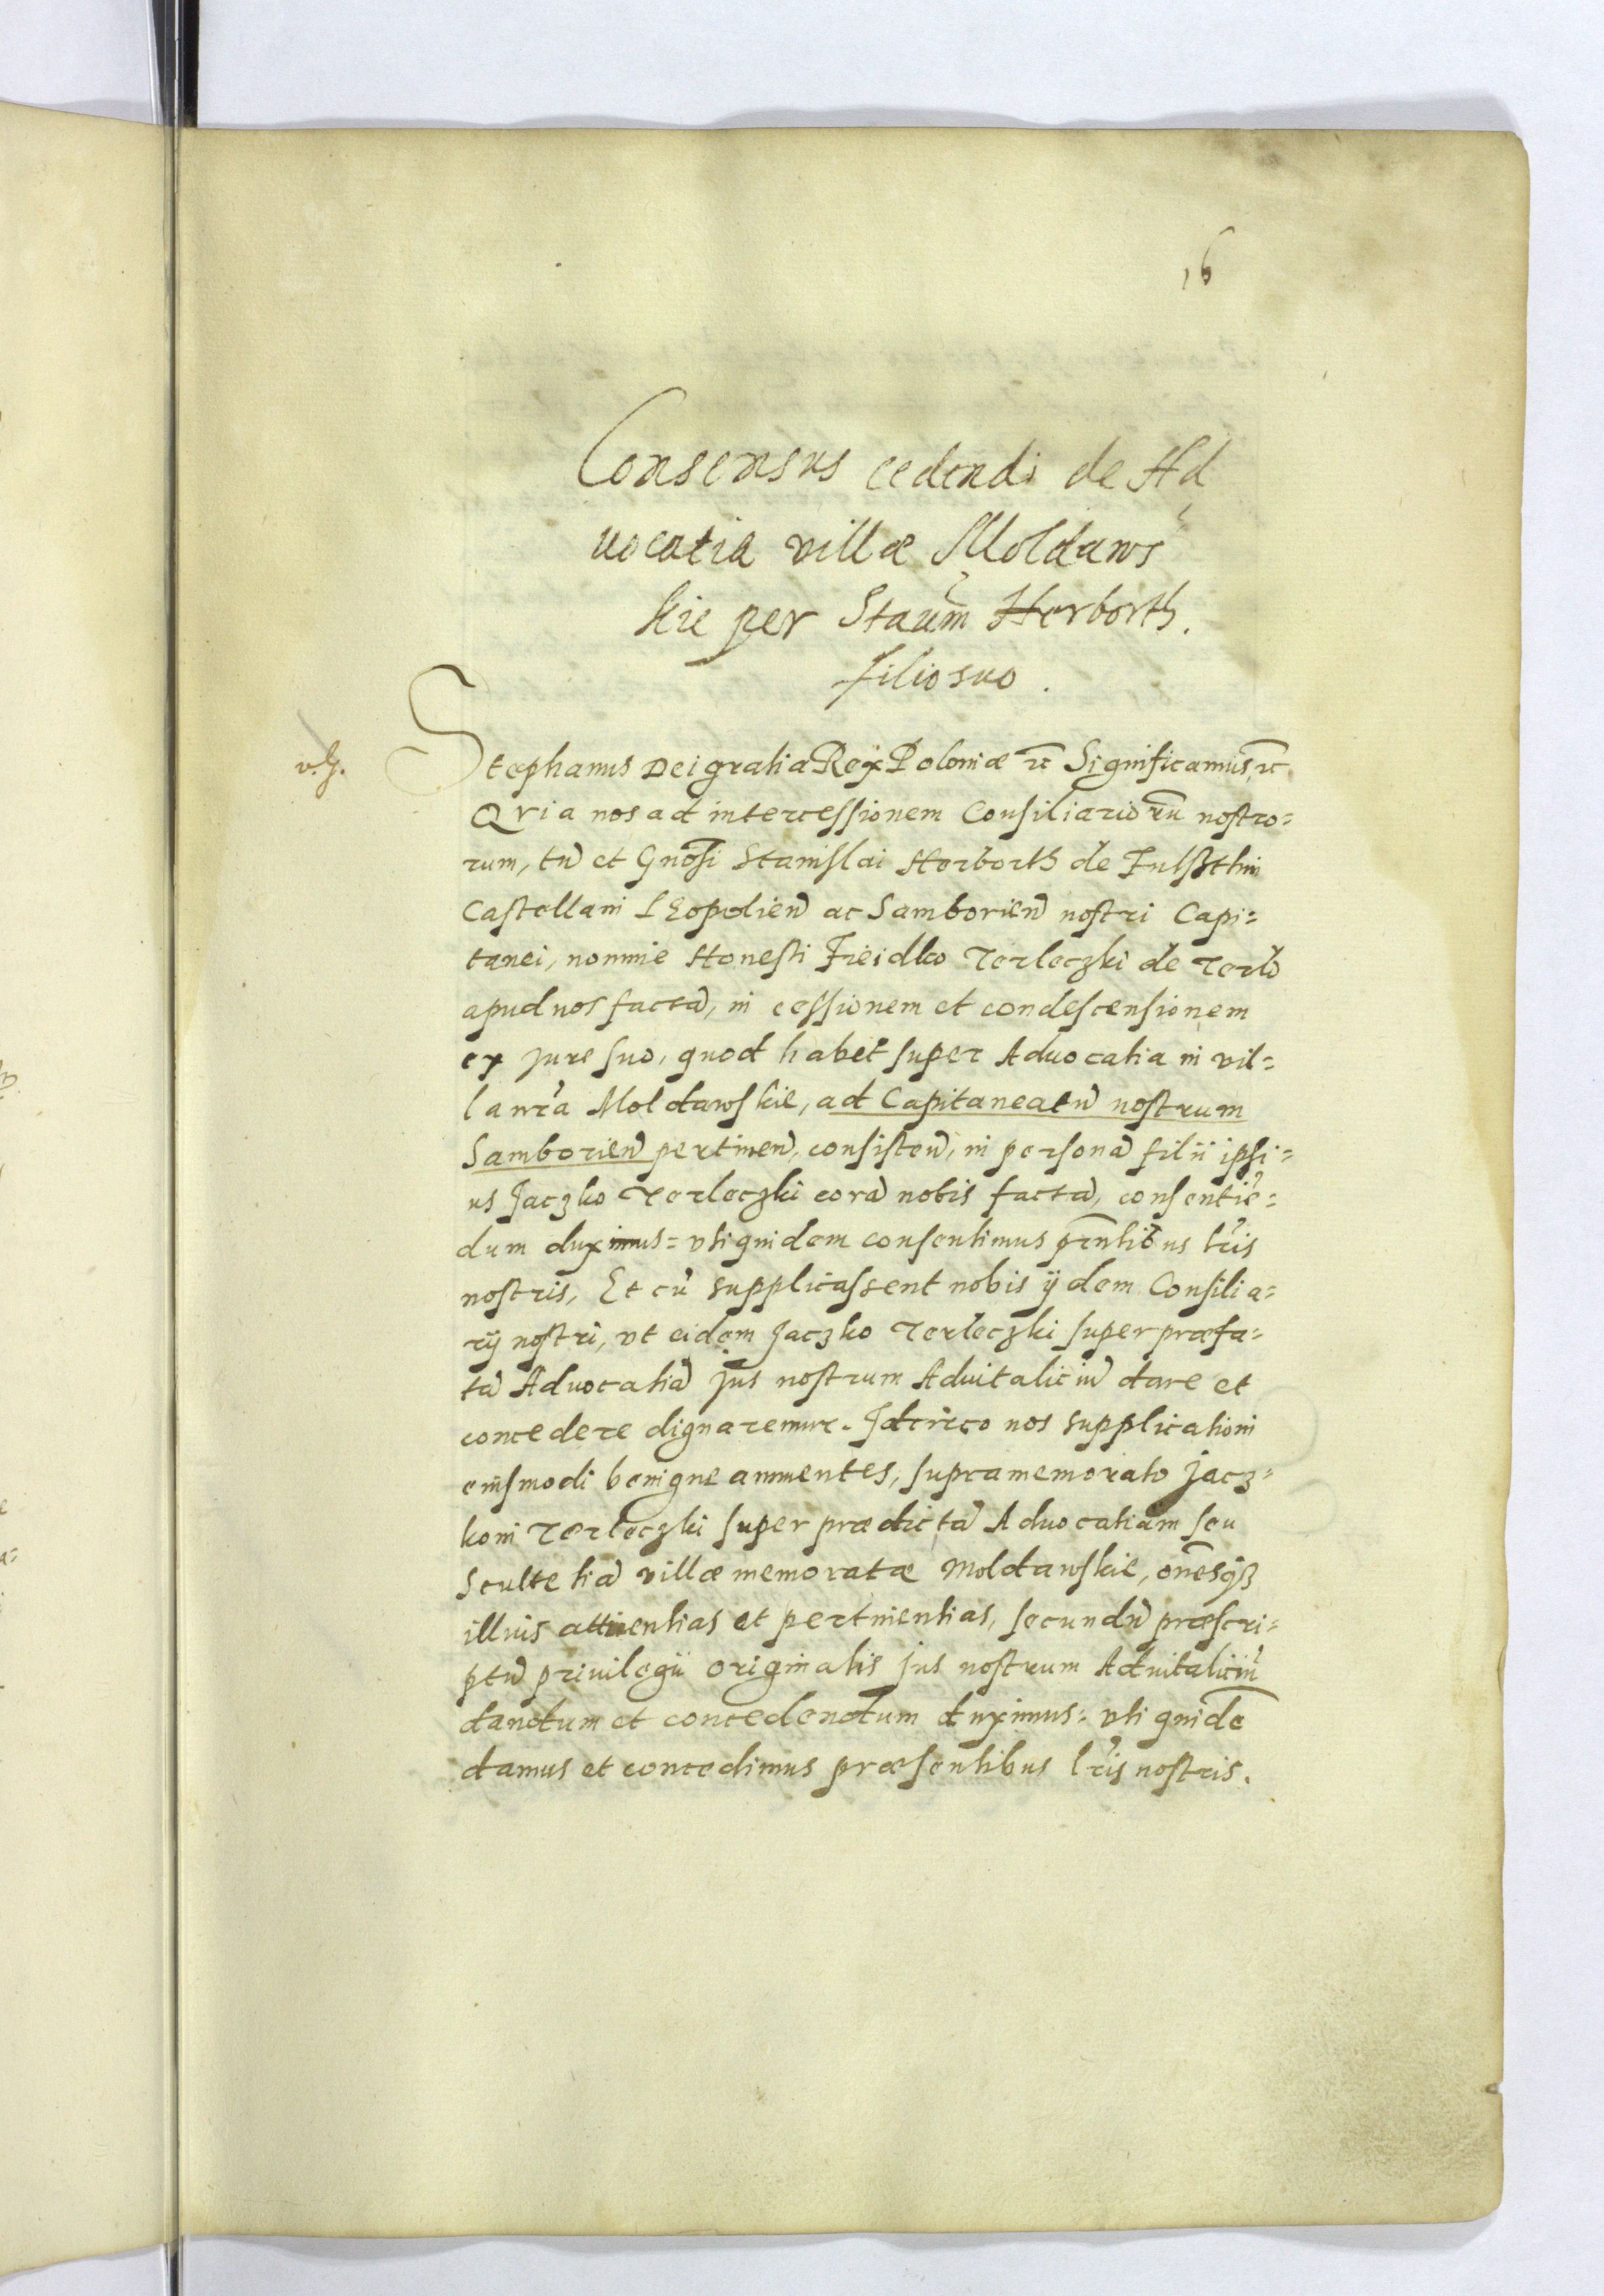 16
Consensus cedendi de Ad
uocatia villæ Moldaws
kie per Staūm Herborth.
filio suo.
v. G.
Stephanus Dei gratia Rex Poloniæ rc̄ Significamus, rc̄
Qvia nos ad intercessionem Consiliariorū nostro=
rum, tū et Gnōsi Stanislai Herborth de Fulsthin
Castellani LEopolien̄ ac Samborien̄ nostri Capi=
tanei, nomine Honesti Fieidko Terleczki de Terlo
apud nos factā, in cessionem et condescensionem
ex jure suo, quod habet super Aduocatia in vil=
la nr̄a Moldawskie, ad Capitaneatū nostrum
Samborien̄ pertinen̄, consisten̄, in personā filii ipsi=
us Jaczko Terleczki corā nobis factā, consentiē=
dum duximus= vti quidem consentimus pr̄ntibus lr̄is
nostris, Et cū supplicassent nobis ijdem Consilia=
rij nostri, vt eidem Jaczko Terleczki super præfa=
tā Aduocatiā jus nostrum Aduitaliciū dare et
concedere dignaremur. Idcirco nos supplicationi
eiusmodi benigne annuentes, supramemorato Jacz=
koni Terleczki super prædictā Aduocatiam seu
Scultetiā villæ memoratæ Moldawskie, om̄esq3
illius attinentias et pertinentias, secundū præscri=
ptū priuilegii originalis jus nostrum Aduitaliciū
dandum et concedendum duximus= vti quidē
damus et concedimus præsentibus lr̄is nostris.